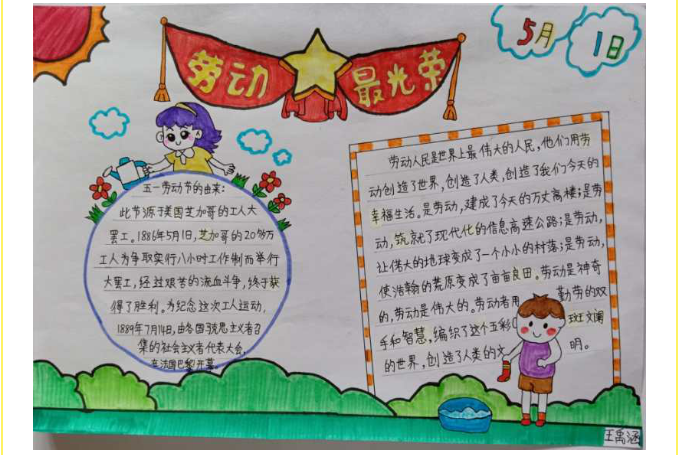 劳动
最光荣
5月
1日
五一劳动节的由来:
此节源于美国芝加哥的工人大
罢工。1886年5月1日,芝加哥的20多万
工人为争取实行八小时工作制而举行
大罢工,经过艰苦的流血斗争,终于获
得了胜利。为纪念这次工人运动,
1889年7月14日,由各国马克思主义者召
集的社会主义者代表大会,
在法国巴黎开幕。
劳动人民是世界上最伟大的人民,他们用劳
动创造了世界,创造了人类,创造了我们今天的
幸福生活。是劳动,建成了今天的万丈高楼;是劳
动,筑就了现代化的信息高速公路;是劳动,
让伟大的地球变成了一个小小的村落;是劳动,
使浩翰的荒原变成了亩亩良田。劳动是神奇
的,劳动是伟大的。劳动者用 勤劳的双
手和智慧,编织了这个五彩 斑斓
的世界,创造了人类的文 明。
王禹涵